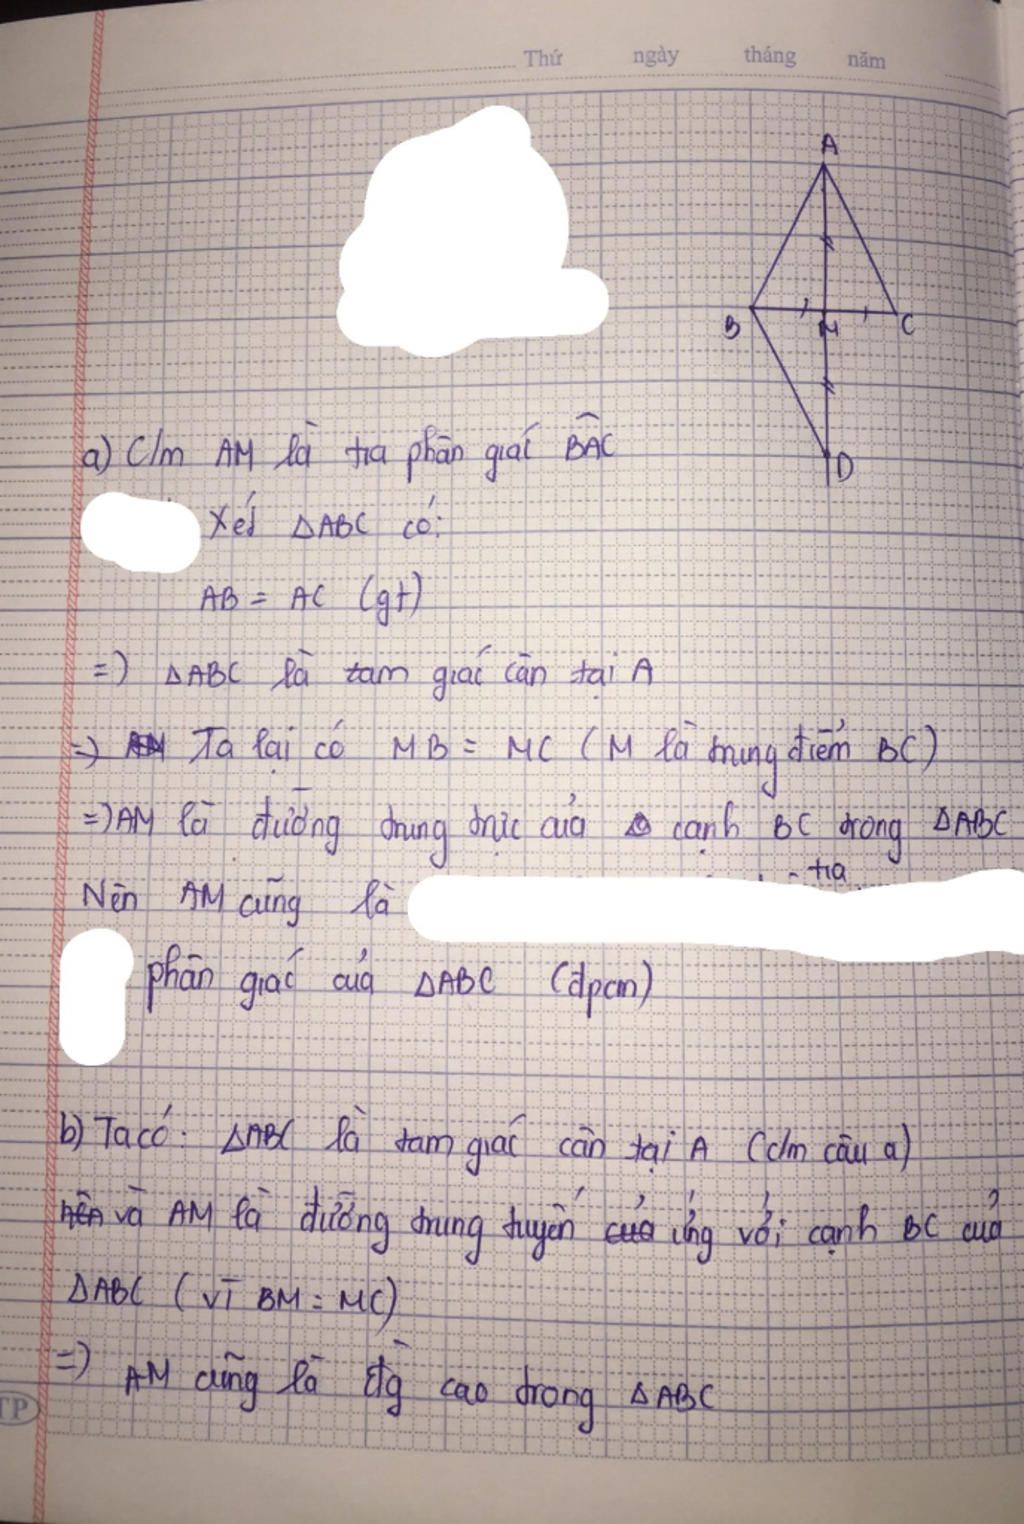 Thứ ngày tháng năm
A
B M C
D
a) C/m AM là tia phân giác BÂC
Xét ΔABC có:
AB = AC (gt)
=) ΔABC là tam giác cân tại A
=) Ta lại có MB = MC (M là trung điểm BC)
=) AM là đường trung trực của cạnh BC trong ΔABC
tia
Nên AM cũng là
phân giác của ΔABC (đpcm)
b) Ta có: ΔABC là tam giác cân tại A (c/m câu a)
nên và AM là đường trung tuyến của ứng với cạnh BC của
ΔABC (vì BM = MC)
=) AM cũng là đg cao trong ΔABC
TP